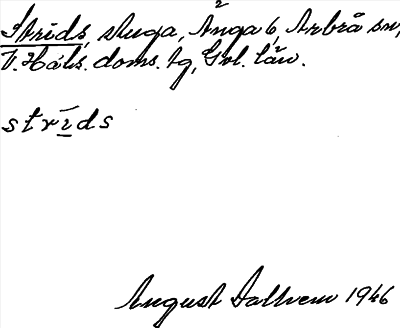 Strids, stuga, Änga 6, Arbrå sn,
V. Häls. doms. tg, Gvl. län.
strids
August Dalhem 1946